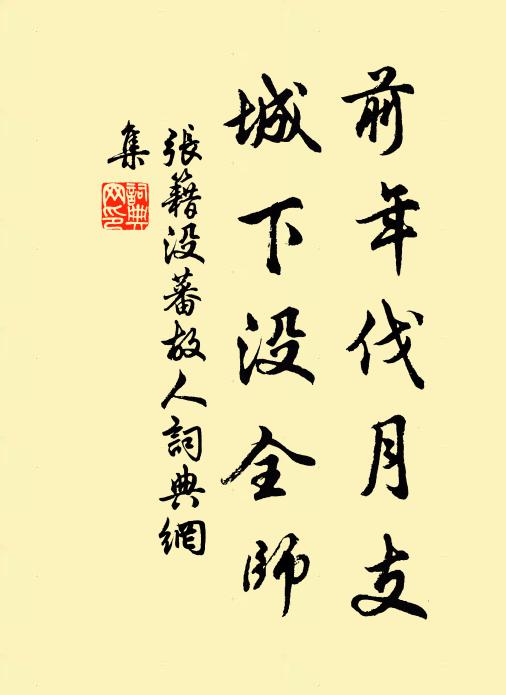 前年伐月支
城下没全師
張籍没蕃故人詞典網
集
詞典网印